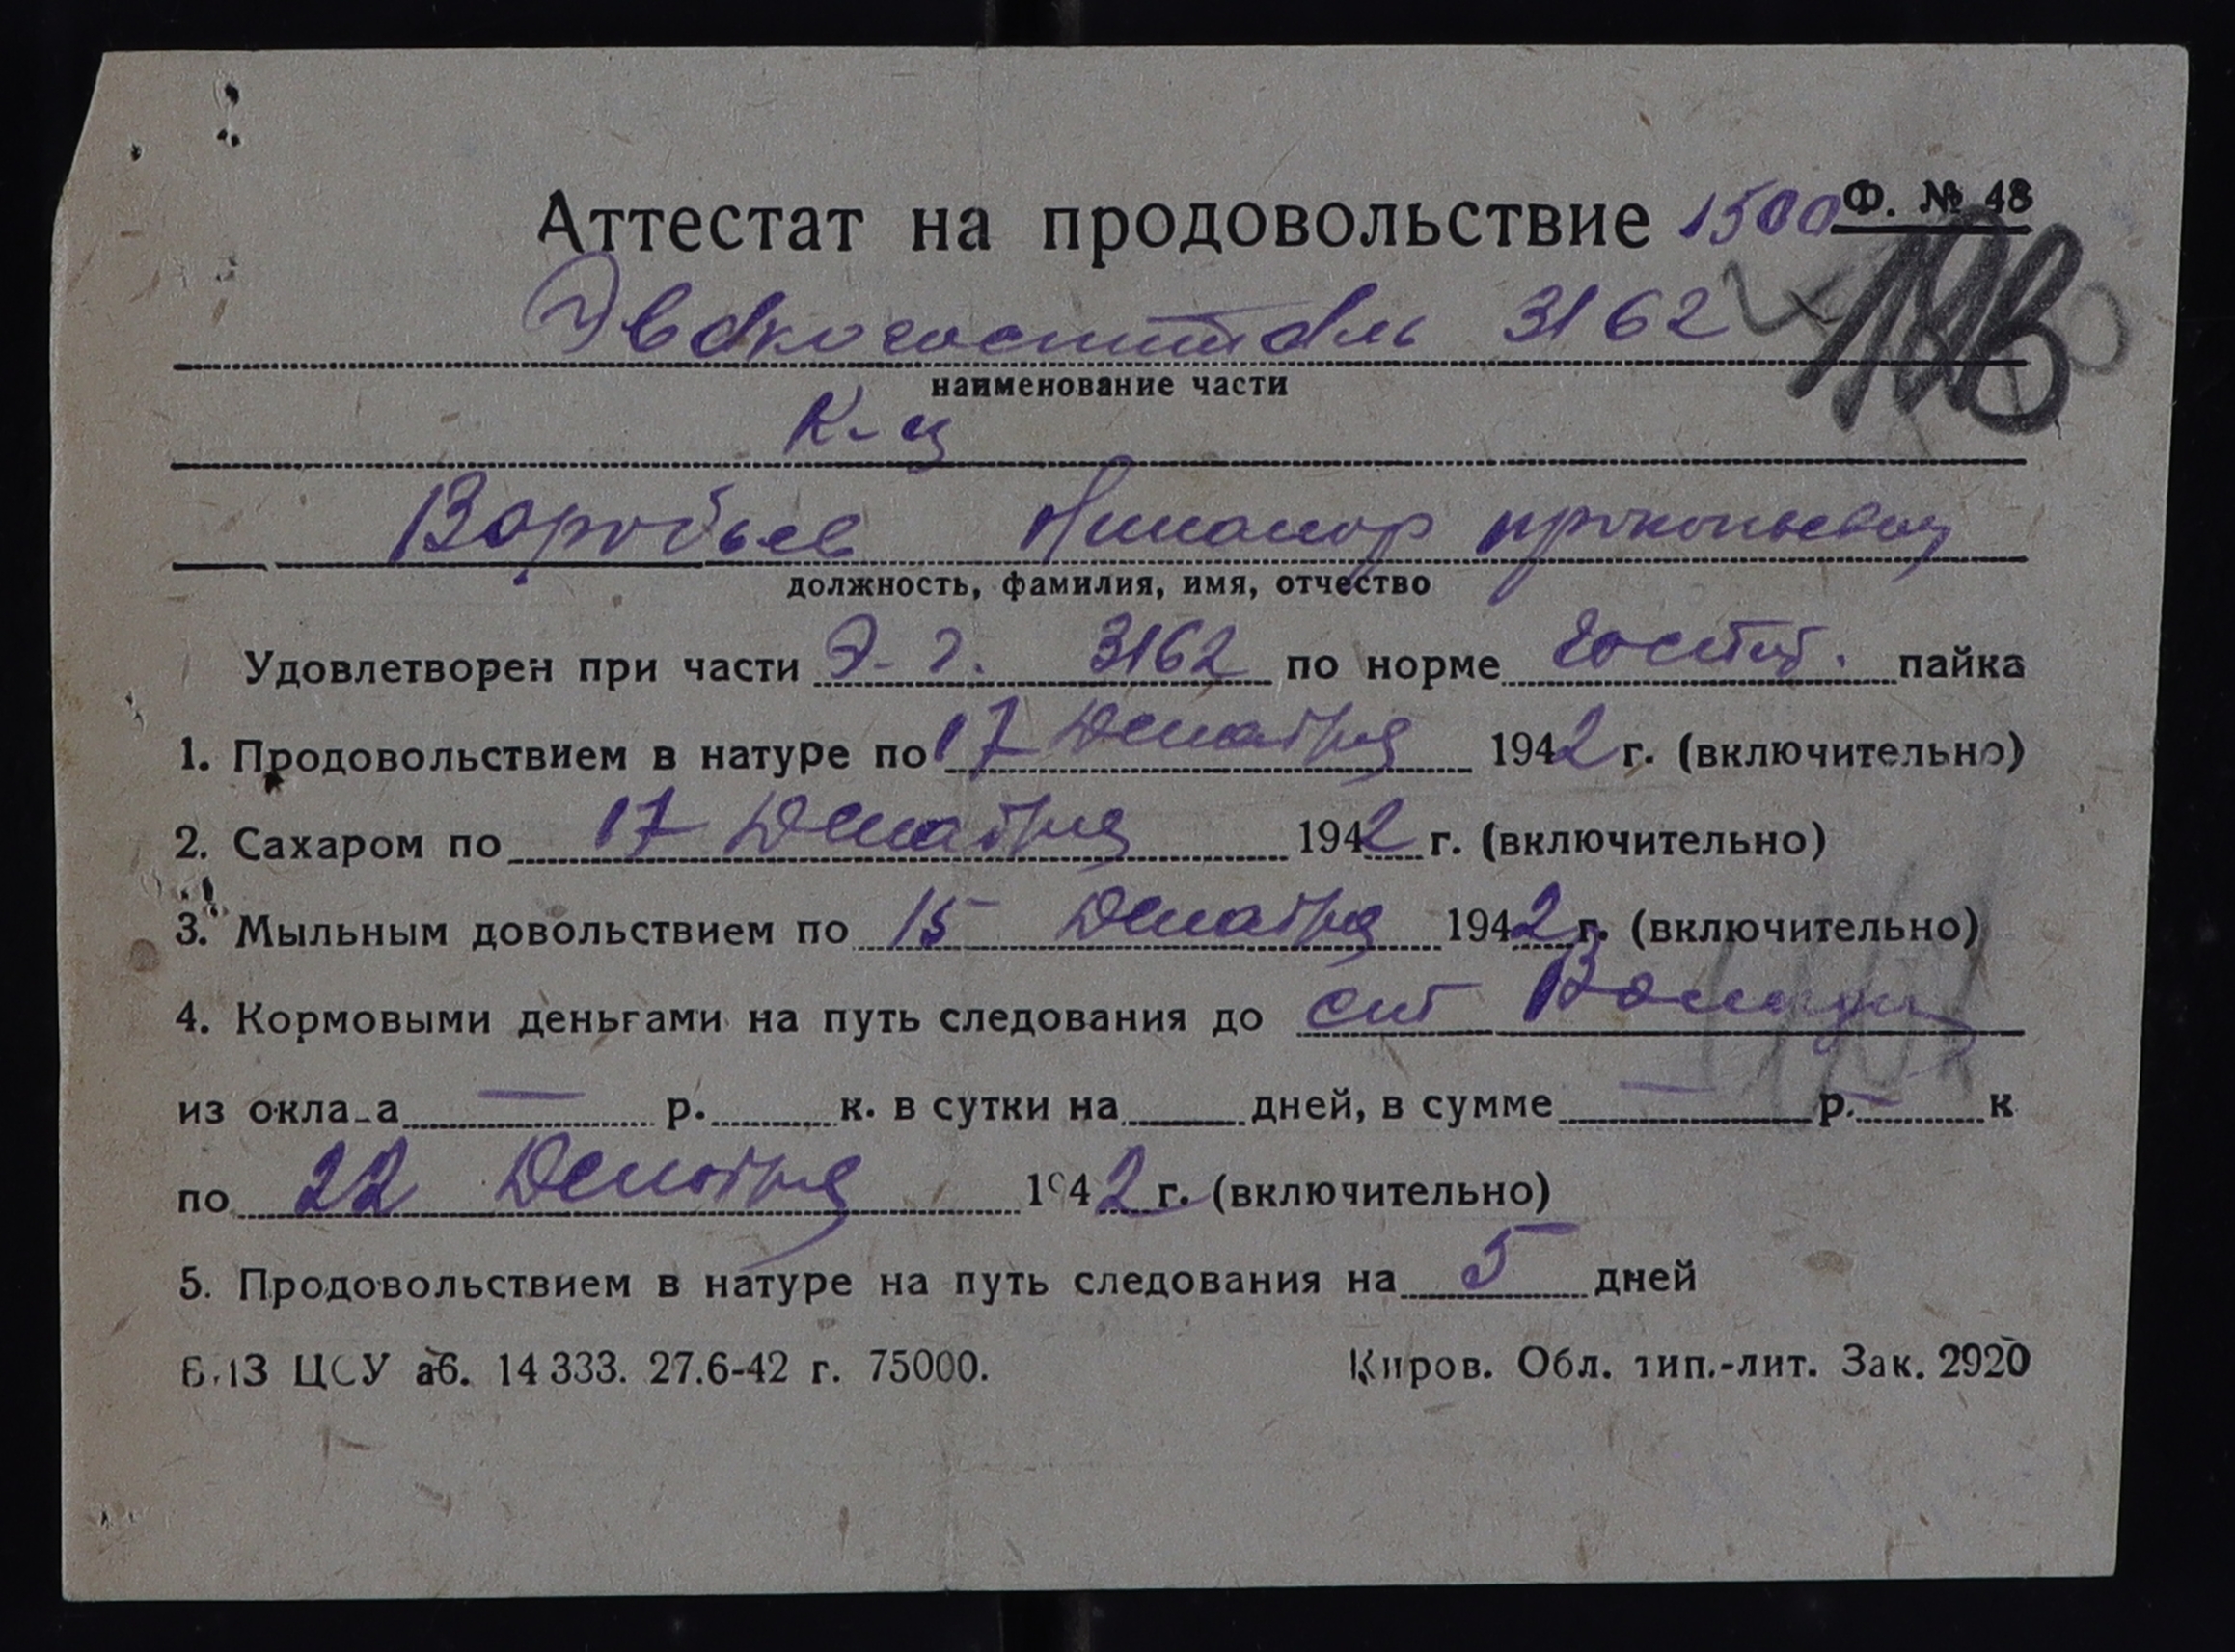 Ф. № 48
Аттестат на продовольствие 1500
Эвакогоспиталь 3162
наименование части
К-ц
Воробьев Никанор Прокопьевич
должность, фамилия, имя, отчество
Удовлетворен при части Э-г. 3162 по норме госпит. пайка
1. Продовольствием в натуре по 17 Декабря 1942 г. (включительно)
2. Сахаром по 17 Декабря 1942 г. (включительно)
3. Мыльным довольствием по 15 Декабря 1942 г. (включительно)
4. Кормовыми деньгами на путь следования до ст
из окла а — р. к. в сутки на дней, в сумме — р. — к
по 22 Декабря 1942 г. (включительно)
5. Продовольствием в натуре на путь следования на 5 дней
ЦСУ аб. 14 333. 27.6-42 г. 75000. Киров. Обл. тип.-лит. Зак. 2920